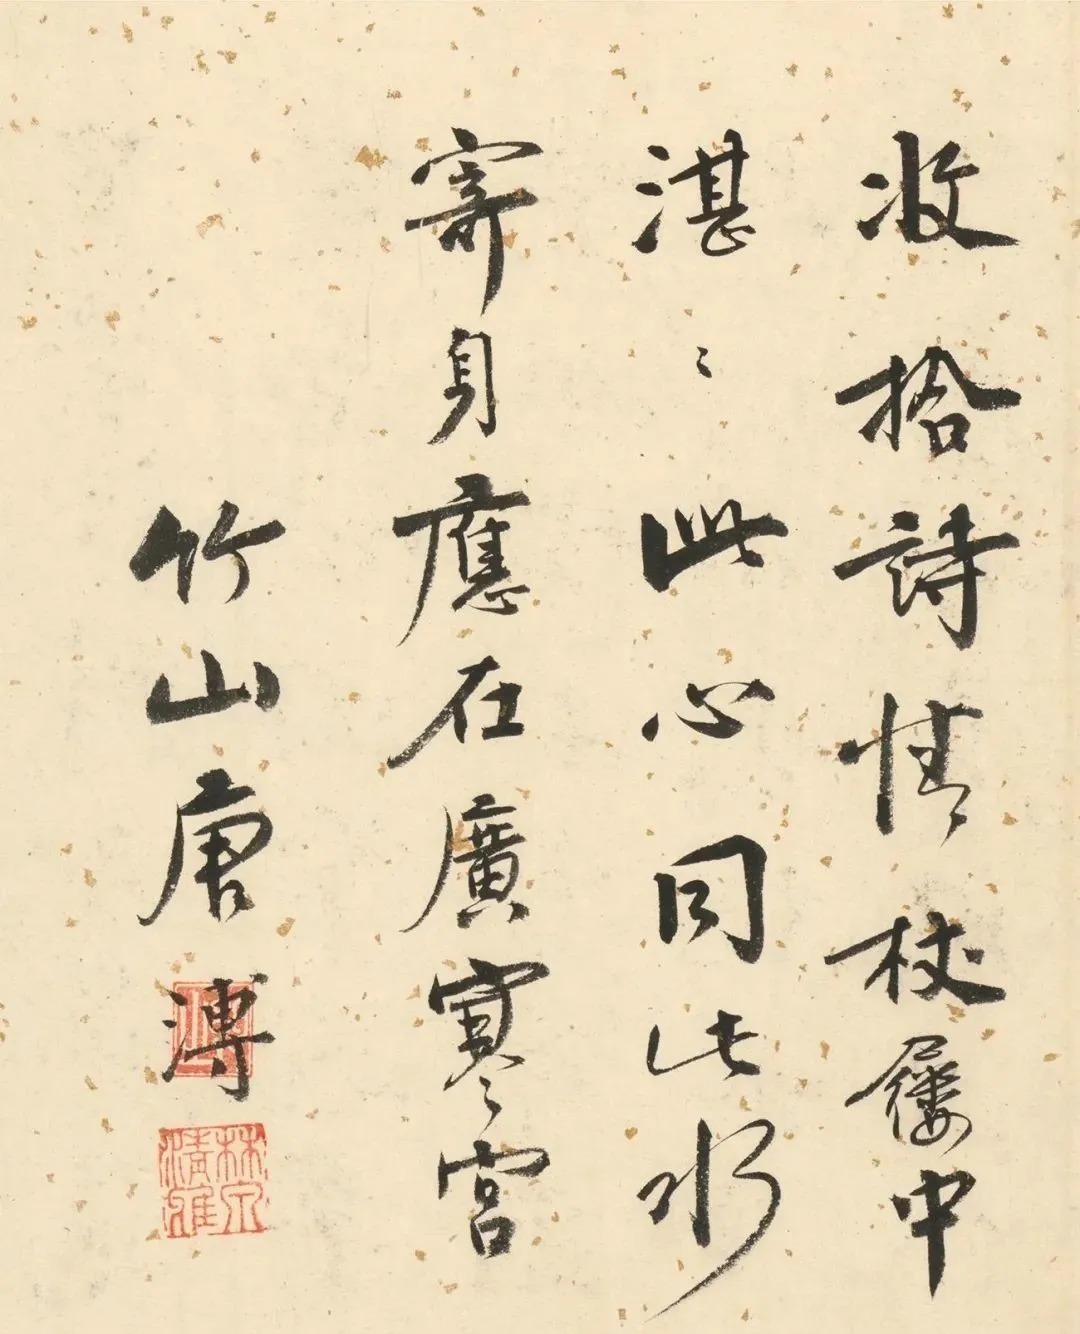 收拾詩情杖屨中
湛〻此心同此水
寄身應在廣寒宮
竹山唐溥
林泉清雅